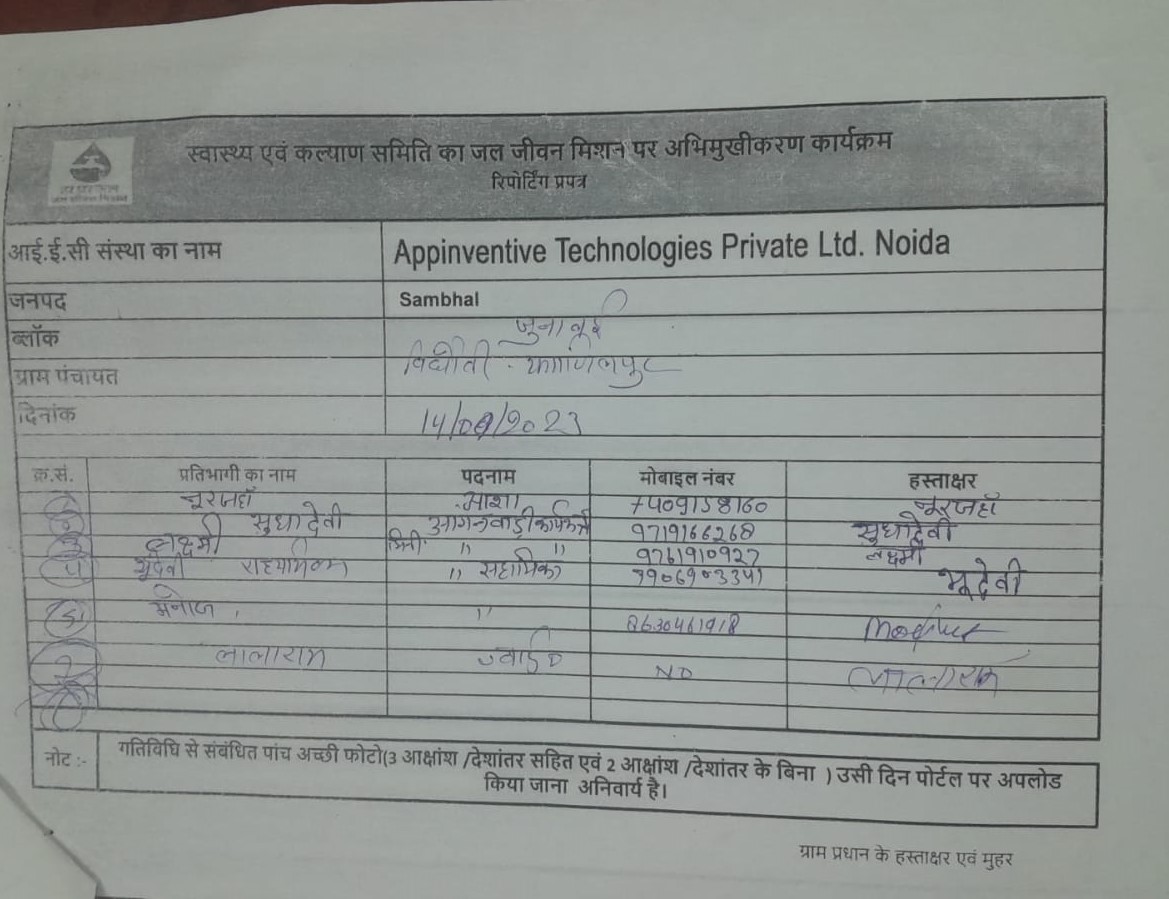 स्वास्थ्य एवं कल्याण समिति का जल जीवन मिशन पर अभिमुखीकरण कार्यक्रम
रिपोर्टिंग प्रपत्र
आई.ई.सी संस्था का नाम Appinventive Technologies Private Ltd. Noida
जनपद Sambhal
ब्लॉक
ग्राम पंचायत
दिनांक 14/09/2023
क्र.सं. प्रतिभागी का नाम पदनाम मोबाइल नंबर हस्ताक्षर
नूरजहाँ आशा 7409158160 नूरजहाँ
सुधा देवी 9719166268 सुधादेवी
लक्ष्मी मिनी " " 9761910927 लक्ष्मी
भूदेवी " सहायिका भूदेवी
मनोज " 8630461918
लालाराम ND लालाराम
नोट :- गतिविधि से संबंधित पांच अच्छी फोटो(3 आक्षांश /देशांतर सहित एवं 2 आक्षांश /देशांतर के बिना ) उसी दिन पोर्टल पर अपलोड
किया जाना अनिवार्य है।
ग्राम प्रधान के हस्ताक्षर एवं मुहर